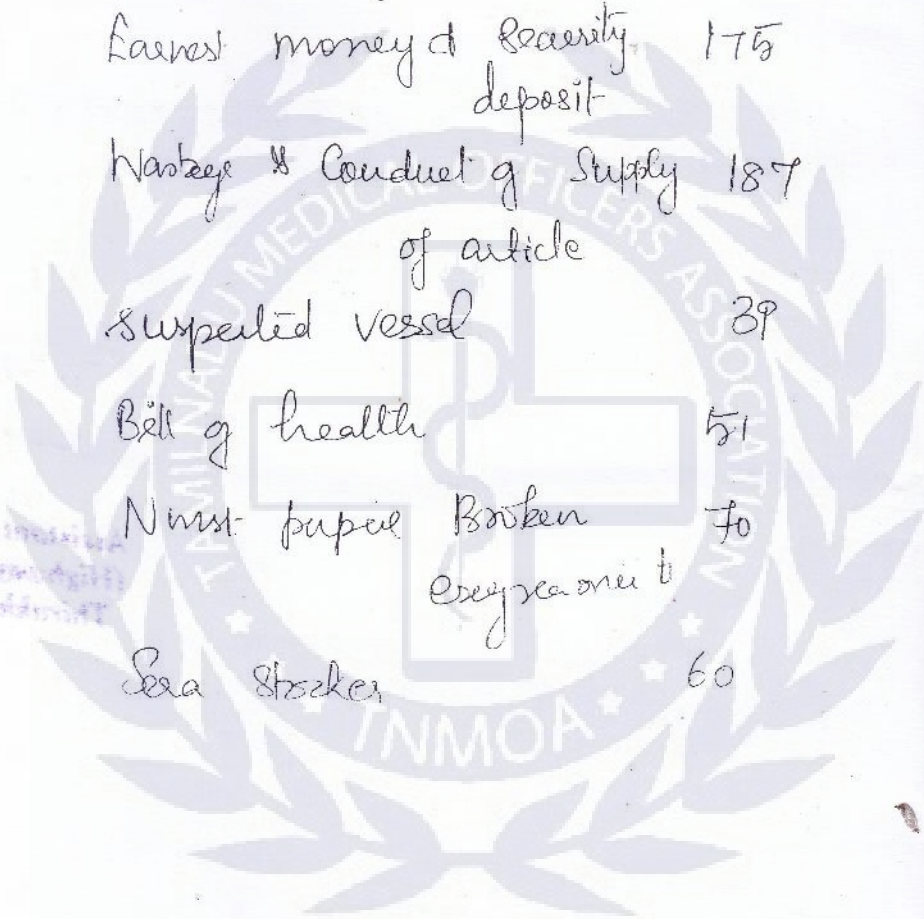 Earnest money & Security 175
deposit
Wastage & Conduct of Supply 187
of article
suspected vessel 39
Bill of health 51
Nurse pupil Broken 70
Sera Stocker 60
TAMILNADU MEDICAL OFFICERS ASSOCIATION
TNMOA